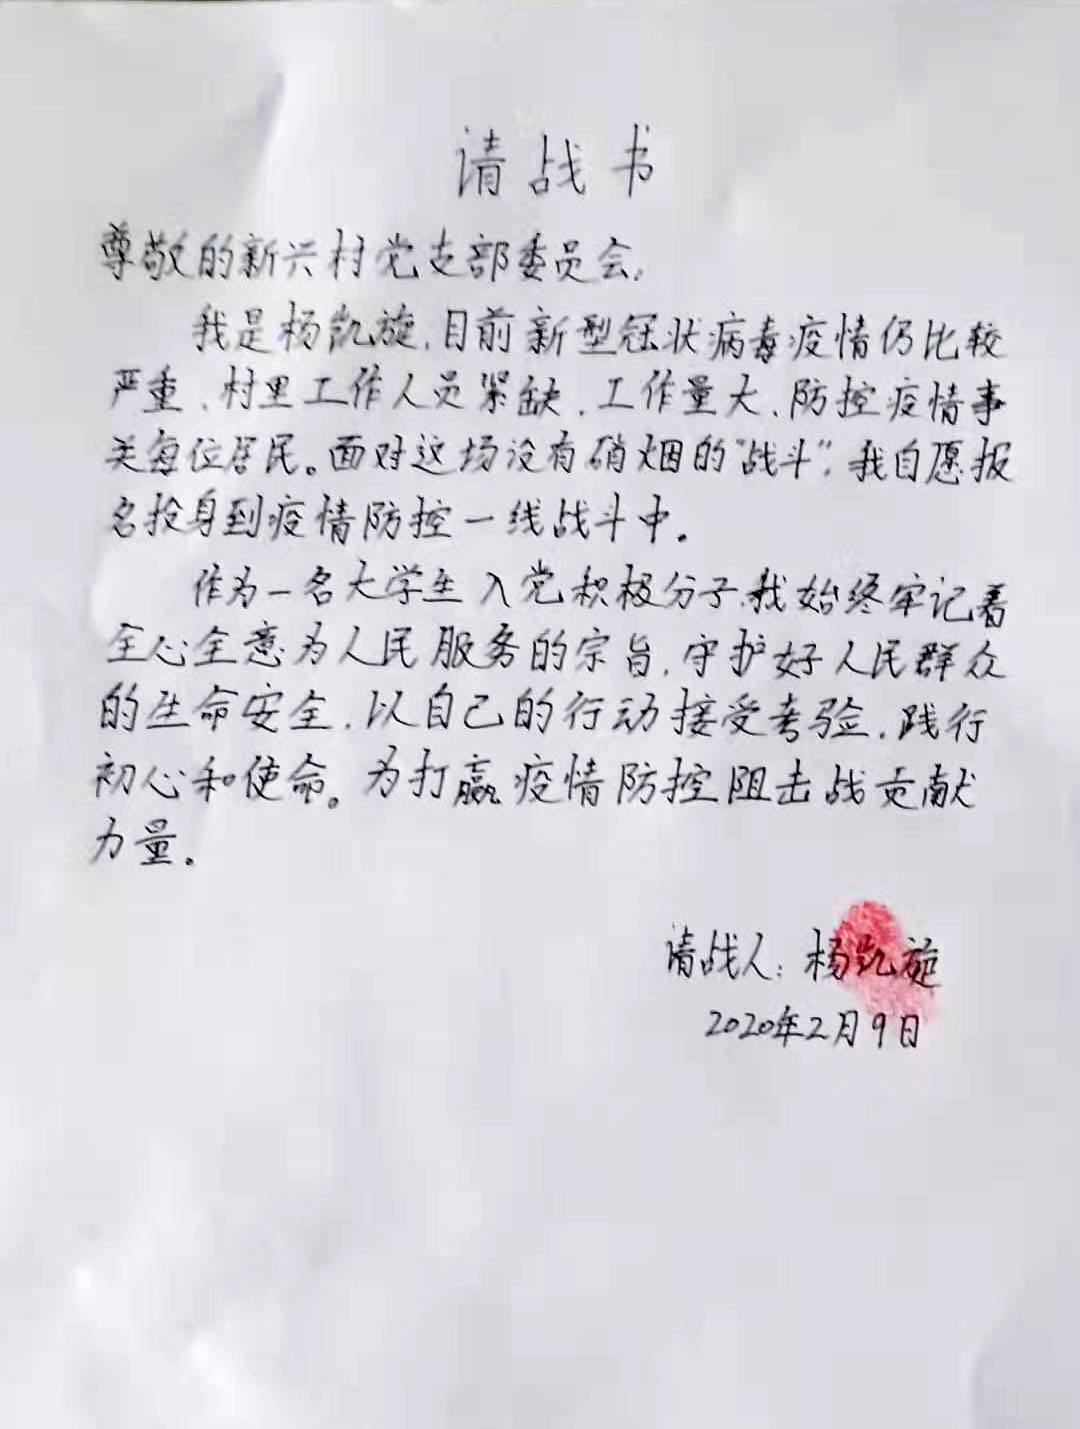 请战书
尊敬的新兴村党支部委员会:
我是杨凯旋,目前新型冠状病毒疫情仍比较
严重、村里工作人员紧缺、工作量大、防控疫情事
关每位居民。面对这场没有硝烟的“战斗”,我自愿报
名投身到疫情防控一线战斗中。
作为一名大学生入党积极分子,我始终牢记着
全心全意为人民服务的宗旨,守护好人民群众
的生命安全,以自己的行动接受考验,践行
初心和使命。为打赢疫情防控阻击战贡献
力量。
请战人:杨凯旋
2020年2月9日